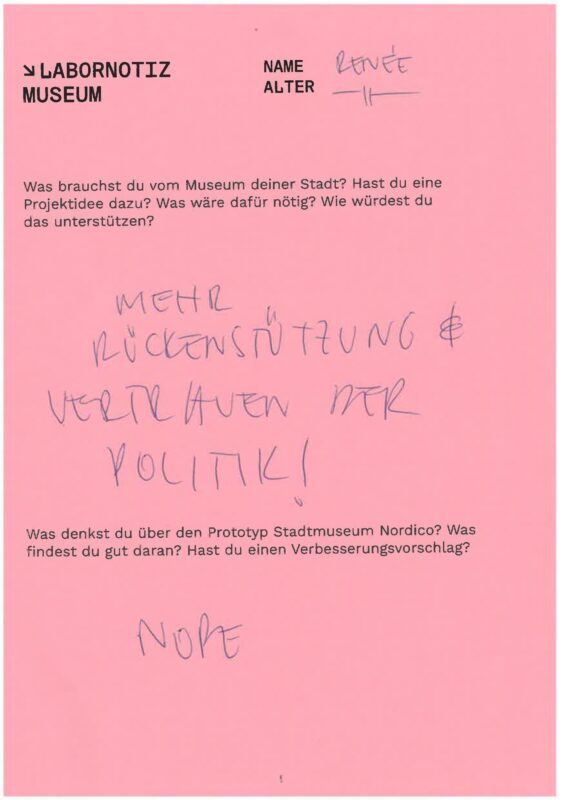 ↘ LABORNOTIZ
MUSEUM
NAME RENÉE
ALTER —||—
Was brauchst du vom Museum deiner Stadt? Hast du eine
Projektidee dazu? Was wäre dafür nötig? Wie würdest du
das unterstützen?
MEHR
RÜCKENSTÜTZUNG &
VERTRAUEN DER
POLITIK!
Was denkst du über den Prototyp Stadtmuseum Nordico? Was
findest du gut daran? Hast du einen Verbesserungsvorschlag?
NOPE